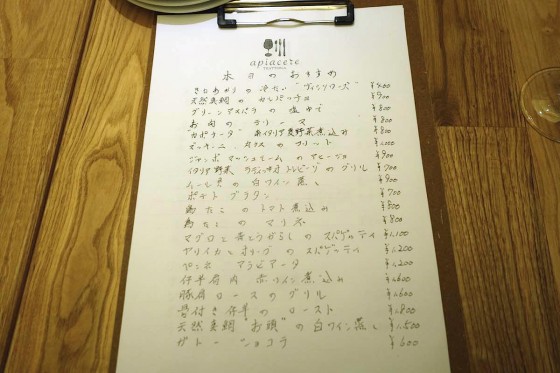 apiacere
本日のおすすめ
きたあかりの冷たい"ヴィシソワーズ" ¥500
天然真鯛のカルパッチョ ¥900
グリーンアスパラの塩ゆで ¥800
お肉のテリーヌ ¥800
"カポナータ"南イタリア夏野菜煮込み ¥800
ズッキーニのフリット ¥1,000
ジャンボマッシュルームのアヒージョ ¥900
イタリア野菜のグリル ¥700
ムール貝の白ワイン蒸し ¥900
ポテトグラタン ¥700
たこのトマト煮込み ¥800
たこのマリネ ¥800
マグロと青とうがらしのスパゲッティ ¥1,100
ヤリイカとオリーブのスパゲッティ ¥1,200
ペンネアラビアータ ¥1,200
仔牛肩肉赤ワイン煮込み ¥1,600
豚肩ロースのグリル ¥1,600
骨付き仔羊のロースト ¥1,800
天然真鯛"お頭"の白ワイン蒸し ¥1,500
ガトーショコラ ¥600